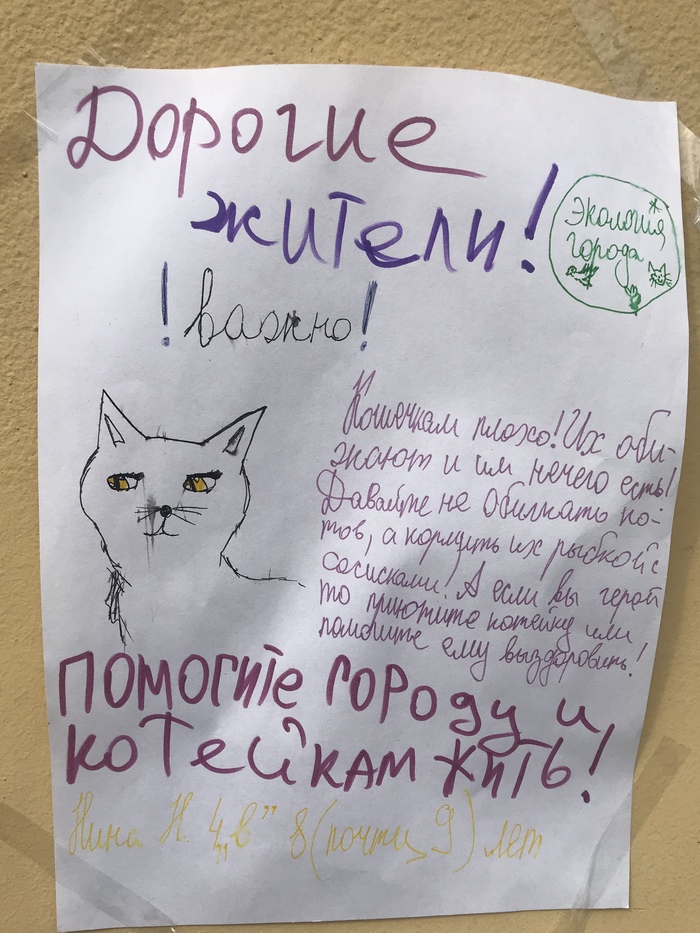 Дорогие
жители!
Экология
города
! важно!
Кошечкам плохо! Их оби-
жают и им нечего есть!
Давайте не обижать ко-
тов, а кормить их рыбкой с
сосисками! А если вы герой
то приютите котейку или
помогите ему выздоровить!
помогите городу и
котейкам жить!
Нина Н. 4 „в" 8 (почти 9) лет